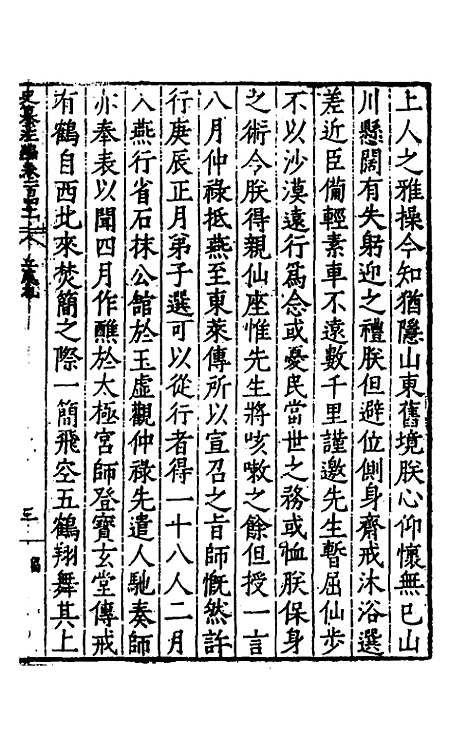 上人之雅操今知猶隱山東舊境朕心仰懷無已山
川懸闊有失躬迎之禮朕但避位側身齋戒沐浴選
差近臣備輕素車不遠數千里謹邀先生暫屈仙步
不以沙漠遠行爲念或憂民當世之務或恤朕保身
之術今朕得親仙座惟先生將咳嗽之餘但授一言
八月仲祿抵燕至東萊傳所以宣召之旨師慨然許
行庚辰正月弟子選可以從行者得一十八人二月
入燕行省石抹公館於玉虛觀仲祿先遣人馳奏師
亦奉表以聞四月作醮於太極宮師登寶玄堂傳戒
有鶴自西北來焚簡之際一簡飛空五鶴翔舞其上
史纂左編卷
三